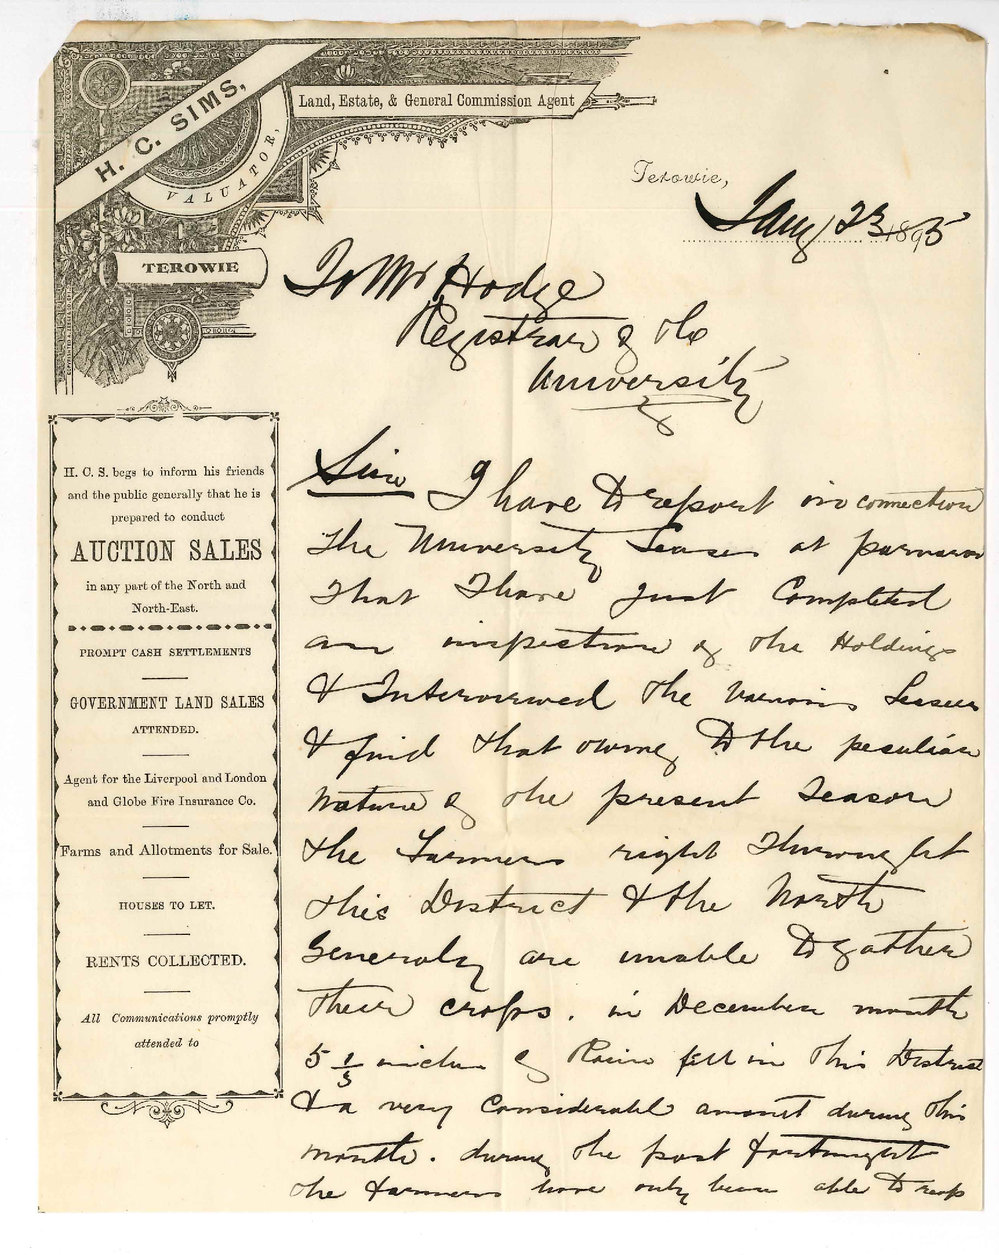 H. C. SIMS,
VALUATOR,
Land, Estate, & General Commission Agent
TEROWIE
Terowie,
Jany 23 1895
To Mr Hodge
Registrar of the
University
H. C. S. begs to inform his friends
and the public generally that he is
prepared to conduct
AUCTION SALES
in any part of the North and
North-East.
PROMPT CASH SETTLEMENTS
GOVERNMENT LAND SALES
ATTENDED.
Agent for the Liverpool and London
and Globe Fire Insurance Co.
Farms and Allotments for Sale.
HOUSES TO LET.
RENTS COLLECTED.
All Communications promptly
attended to
Sir I have to report in connection
the University Leases at
that I have just Completed
an inspection of the Holdings
& Interviewed the various Lessees
& find that owing to the peculiar
nature of the present Season
the Farmers right Throught
this District & the North
Generaly are unable to gather
their crops. in December month
5 1/3 inches of Rain fell in this District
& a very Considerable amount during this
month. during the past fortnight
the farmers have only been able to reap